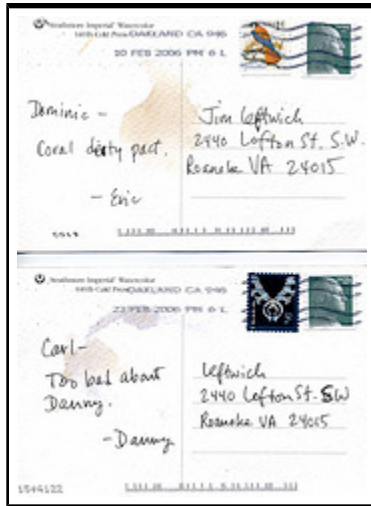 Strathmore Imperial Watercolor
140 lb Cold Press OAKLAND CA 946
10 FEB 2006 PM 6 L
Dominic –
Coral dirty pact.
– Eric
Jim Leftwich
2440 Lofton St. S.W.
Roanoke VA 24015
Strathmore Imperial Watercolor
140 lb Cold Press OAKLAND CA 946
22 FEB 2006 PM 6 L
Carl –
Too bad about
Danny.
– Danny
Leftwich
2440 Lofton St. SW
Roanoke VA 24015